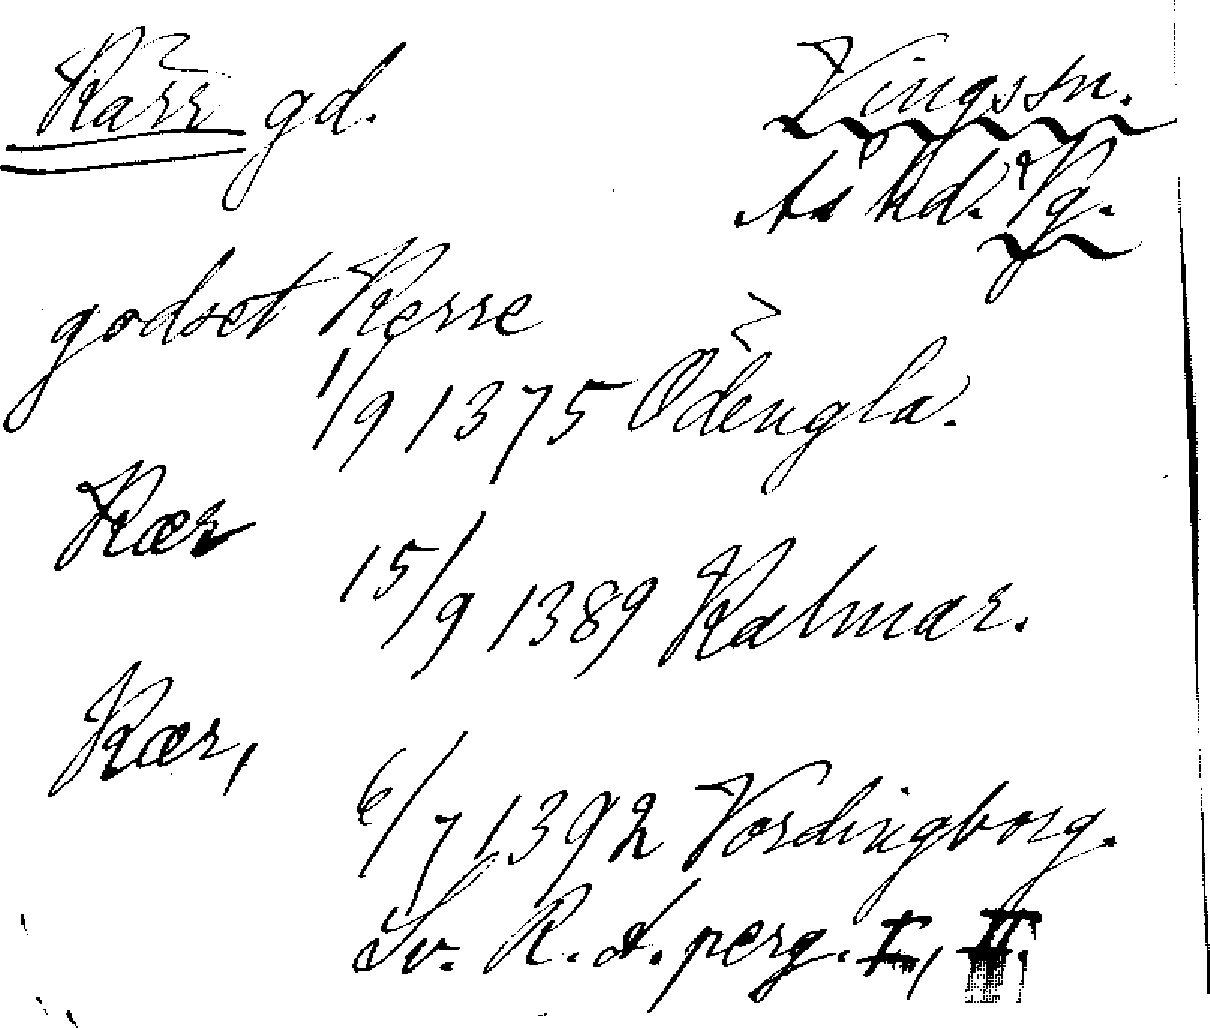 Kärr gd.
Vingssn.
Ås hd. Vg.
godset Kerre
1/9 1375 Odengla.
Kær
15/9 1389 Kalmar.
Kær,
6/7 1392 Vordingborg.
Sv. R. A. perg. I, II.